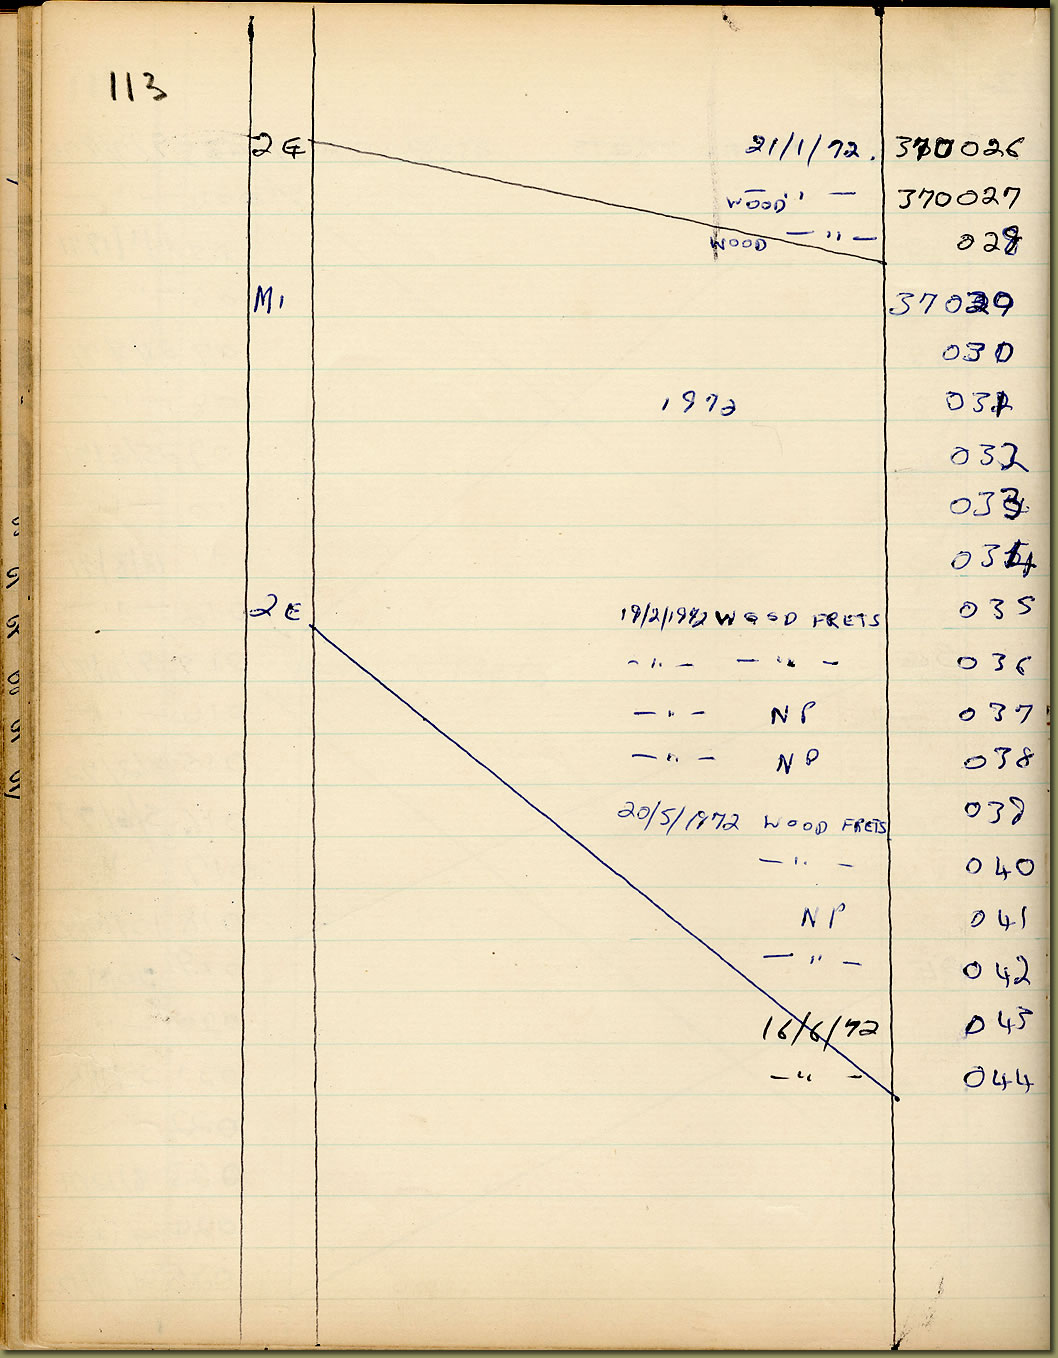 113
2E 21/1/72. 370026
WOOD — " — 370027
WOOD — " — 028
M1 37029
030
1972 031
032
033
034
2E 19/2/1972 WOOD FRETS 035
— " — — " — 036
— " — NP 037
— " — NP 038
20/5/1972 WOOD FRETS 039
— " — 040
NP 041
— " — 042
16/6/72 043
— " — 044